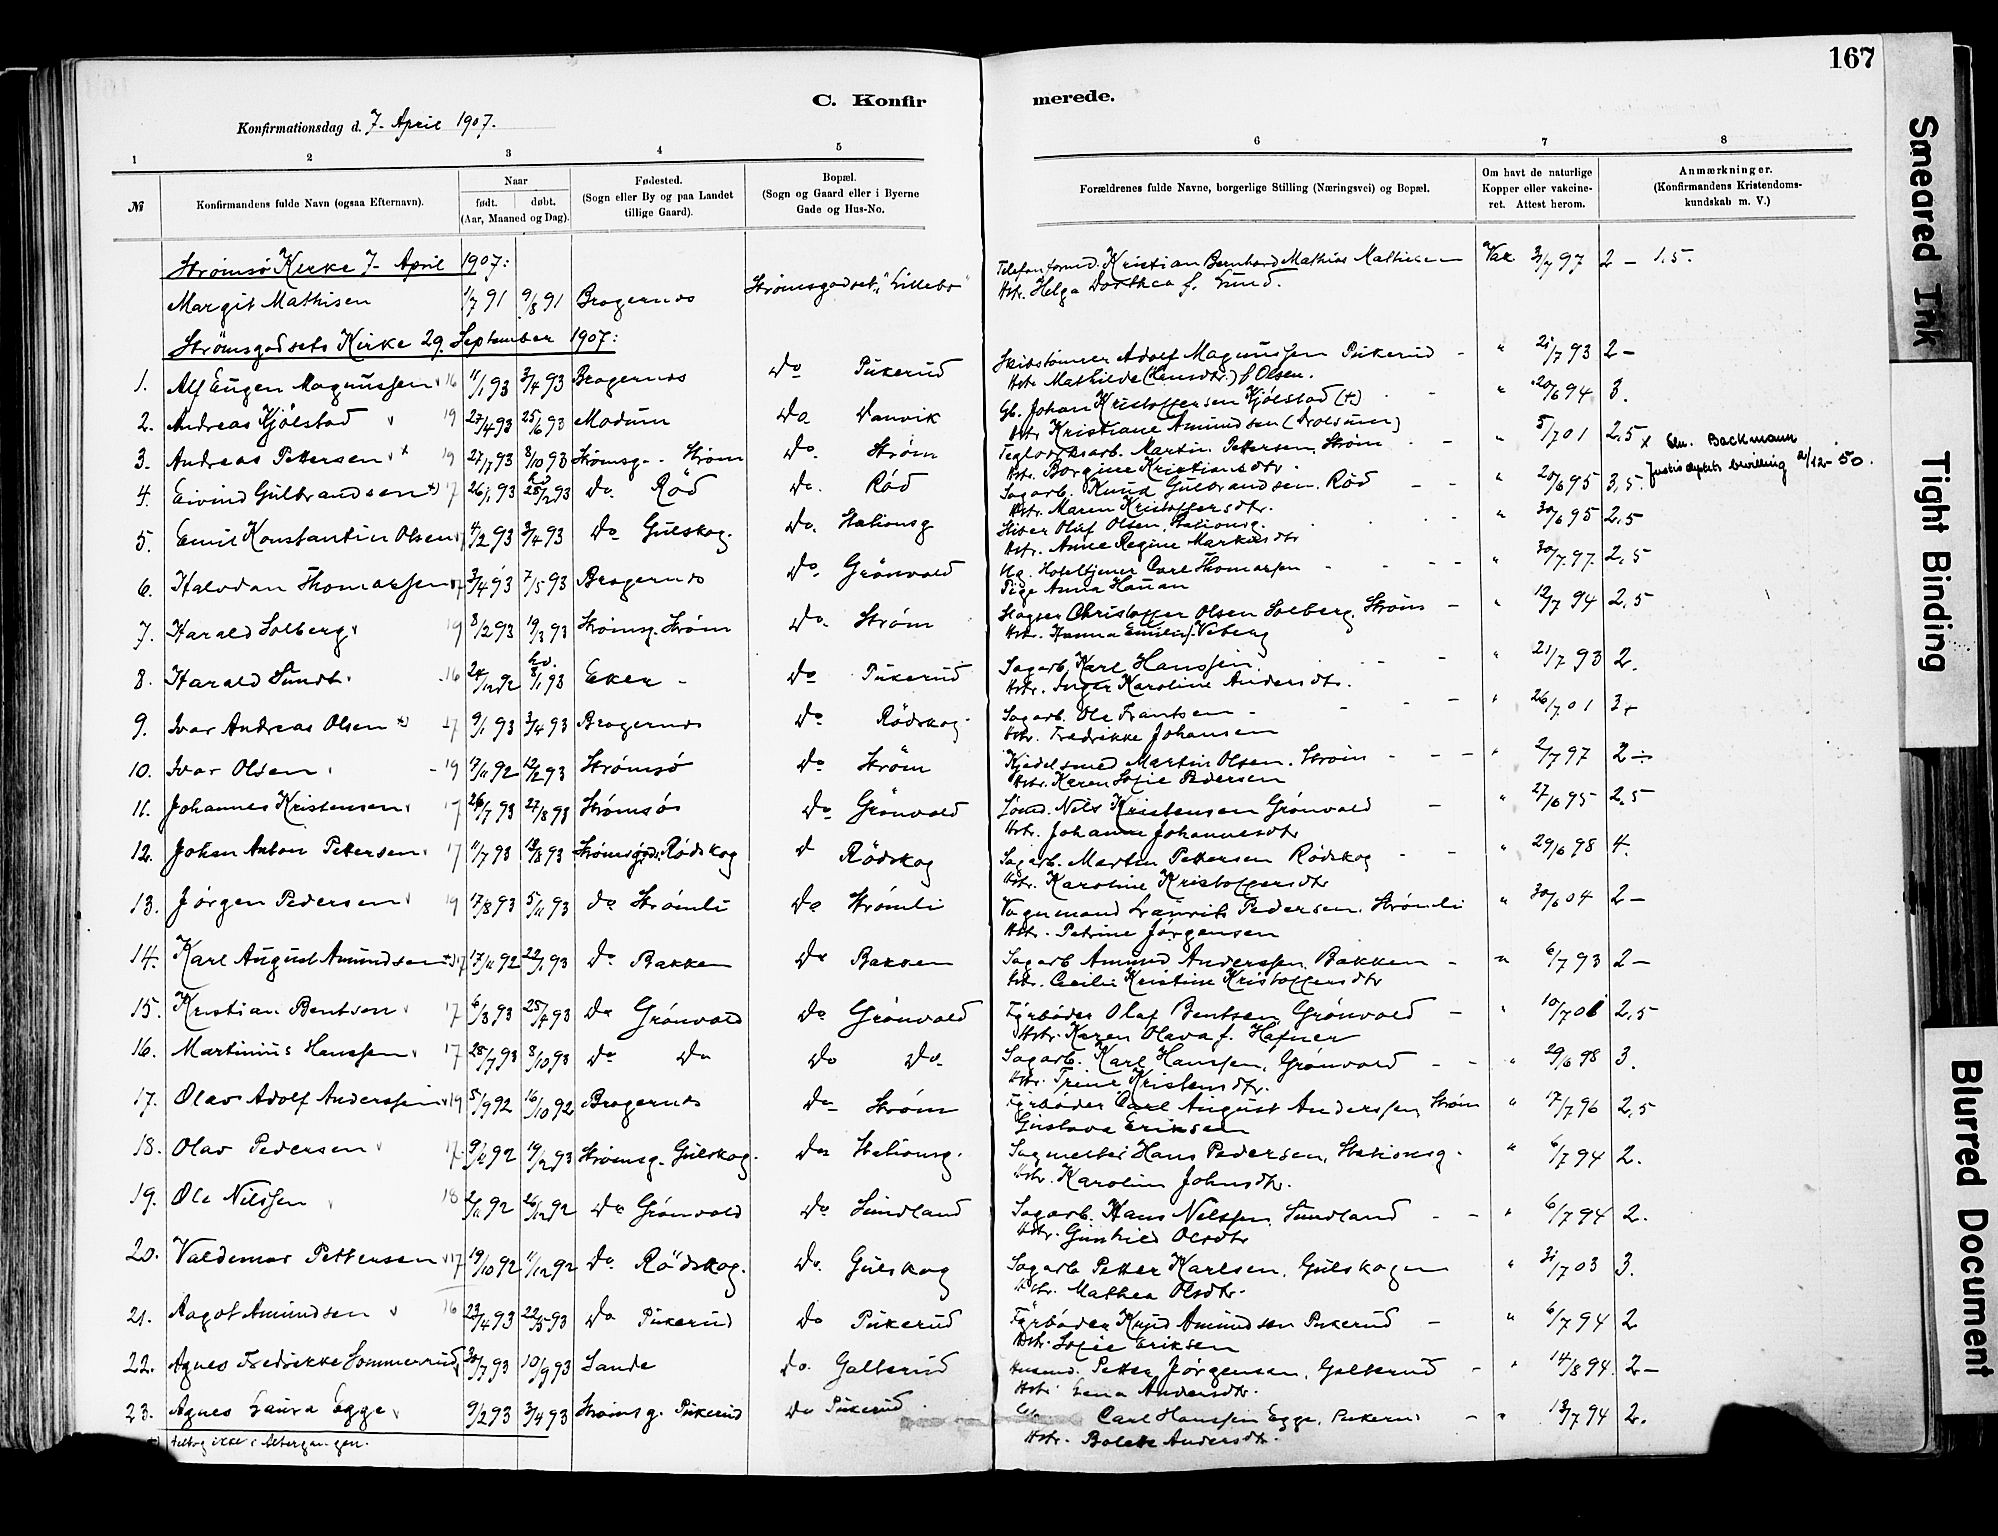 167
C. Konfirmerede.
Konfirmationsdag d. 7. April 1907.
1 2 3 4 5 6 7 8
№
Konfirmandens fulde Navn (ogsaa Efternavn).
Naar
født. døbt.
(Aar, Maaned og Dag).
Fødested.
(Sogn eller By og paa Landet
tillige Gaard).
Bopæl.
(Sogn og Gaard eller i Byerne
Gade og Hus-No.
Forældrenes fulde Navne, borgerlige Stilling (Næringsvei) og Bopæl.
Om havt de naturlige
Kopper eller vakcine-
ret. Attest herom.
Anmærkninger.
(Konfirmandens Kristendoms-
kundskab m. V.)
Strømsø Kirke 7. April 1907:
Margit Mathisen 1/7 91 9/8 91 Bragernes Strømsgodset, "Lillebo" Telefonformd. Kristian Bernhard Mathias Mathisen Vak 3/7 97 2 - 1.5.
Hstr. Helga Dorthea f. Lund.
Strömsgodsets Kirke 29. September 1907:
1. Alf Eugen Magnussen 16 11/1 93 3/4 93 Bragernes Do Pukerud Skibstømrer Adolf Magnussen Pukerud - " 21/7 93 2-
Hstr. Mathilde (Hansdtr.) f Olsen.
2. Andreas Kjölstad 19 27/4 93 25/6 93 Modum Do Danvik Gb. Johan Kristoffersen Kjölstad (+) " 20/6 94 3.
Hstr. Kristiane Amundsen
3. Andreas Pettersen + 19 27/7 93 8/10 93 Strømsg. - Strøm Do. Strøm Teglværksarb. Martin Pettersen, Strøm - " 5/7 01 2,5 x Backmann
Hstr. Borgine Kristiansdtr. bevilling 2/12-50.
4. Eivind Gulbrandsen 17 26/1 93 25/12 93 Do. Röd Do. Röd Sagarb. Knud Gulbrandsen. Röd - - " 20/6 95 3,5.
Hstr. Maren Kristoffersdtr.
5. Emil Konstantin Olsen 17 4/2 93 3/4 93 Do Gulskog. Do. Stationsg. Skriver Olaf Olsen, Stationsg. " 30/6 95 2,5
Hstr. Anne Regine Markusdtr
6. Halvdan Thomassen 17 3/4 93 7/5 93 Bragernes Do. Grönvold Ug. Hoteltjener Carl Thomassen - " 30/7 97. 2,5
Pige Anna Hauan
7. Harald Solberg 19 8/2 93 19/3 93 Strømsg. Strøm Do. Strøm Christoffer Olsen Solberg, Strøm - " 12/7 94 2,5
Hstr. Hanna Emilie f. Viberg
8. Harald Sundt 16 24/12 92 hd. 8/1 93 Eker - Do Pukerud Sagarb. Karl Hanssen. " 21/7 93 2.
Hstr. Inger Karoline Andersdtr.
9. Ivar Andreas Olsen 17 9/1 93 3/4 93 Bragernes Do Rödskog. Sagarb. Ole Frantsen - " 26/7 01 3+
Hstr. Fredrikke Johansen
10. Ivar Olsen 19 9/11 92 12/2 93 Strømsø Do Strøm Kjedelsmed Martin Olsen. Strøm - " 2/7 97 2÷
Hstr. Karen Sofie Pedersen
11. Johannes Kristensen 17 26/7 93 27/8 93 Strømsø Do Grönvold Nils Kristensen Grönvold - " 27/6 95 2,5
Hstr. Johanne Johannesdtr
12. Johan Anton Pettersen 17 11/7 93 13/8 93 Strømsgods. Rödskog D Rödskog Sagarb. Martin Pettersen Rödskog - " 29/6 98 4.
Hstr. Karoline Kristoffersdtr
13. Jørgen Pedersen 19 17/8 93 5/11 93 Do Strømli Do Strømli Vognmand Laurits Pedersen. Strømli " 30/6 04 2-
Hstr. Petrine Jørgensen
14. Karl August Amundsen 17 17/11 92 22/1 93 Do. Bakken Do Bakken Sagarb Amund Anderssen Bakken - " 6/7 93 2-
Hstr. Cecilie Kristine Kristoffersdtr
15. Kristian Bentson 17 6/3 93 25/4 93 Do Grönvold Do Grönvold Fyrbøder Olaf Bentsen Grönvold - " 10/7 01 2,5
Hstr. Karen Olava f. Hafner
16. Martinius Hanssen 17 28/7 93 8/10 93 Do Do Do Do. Sagarb. Karl Hanssen, Grönvold - " 29/6 98 3.
Hstr. Trine Kristensdtr.
17. Olav Adolf Anderssen 19 5/9 92 16/10 92 Bragernes Do Strøm Fyrbøder Carl August Anderssen, Strøm " 17/7 96 2,5
Gustava Eriksen
18. Olav Pedersen 17 9/12 92 19/2 93 Strømsg. Gulskog. Do Stationsg. Sagmester Hans Pedersen, Stationsg. " 6/7 94 2.
Hstr. Karolin Johnsdtr.
19. Ole Nilssen 18 2/11 92 26/12 92 Do Grönvold Do Sundland Sagarb. Hans Nelssen Sundland - - " 6/7 94 2.
Hstr. Gunhild Olsdtr
20. Valdemar Pettersen 17 19/10 92 11/12 92 Do. Rödskog. Do. Gulskog Sagarb Petter Karlsen, Gulskogen " 31/7 03 3.
Hstr. Mathea Olsdtr.
21. Aagot Amundsen 16 23/4 93 22/5 93 Do Pukerud Do Pukerud Fyrbøder Knud Amundsen Pukerud - " 6/7 94 2
Hstr. Sofie Eriksen
22. Agnes Fredrikke Sommerrud 30/7 93 10/9 93 Sande Do. Galterud Husmd. Petter Jörgensen, Galterud - " 14/8 94. 2-
Hstr. Lena Andersdtr.
23. Agnes Laura Egge 9/2 93 3/4 93 Strømsg. Pukerud Do Pukerud. Carl Hanssen Egge, Pukerud - " 13/7 94 2.
Hstr. Bolette Andersdtr.
+) deltog ikke i Altergangen.
Smeared Ink
Tight Binding
Blurred Document